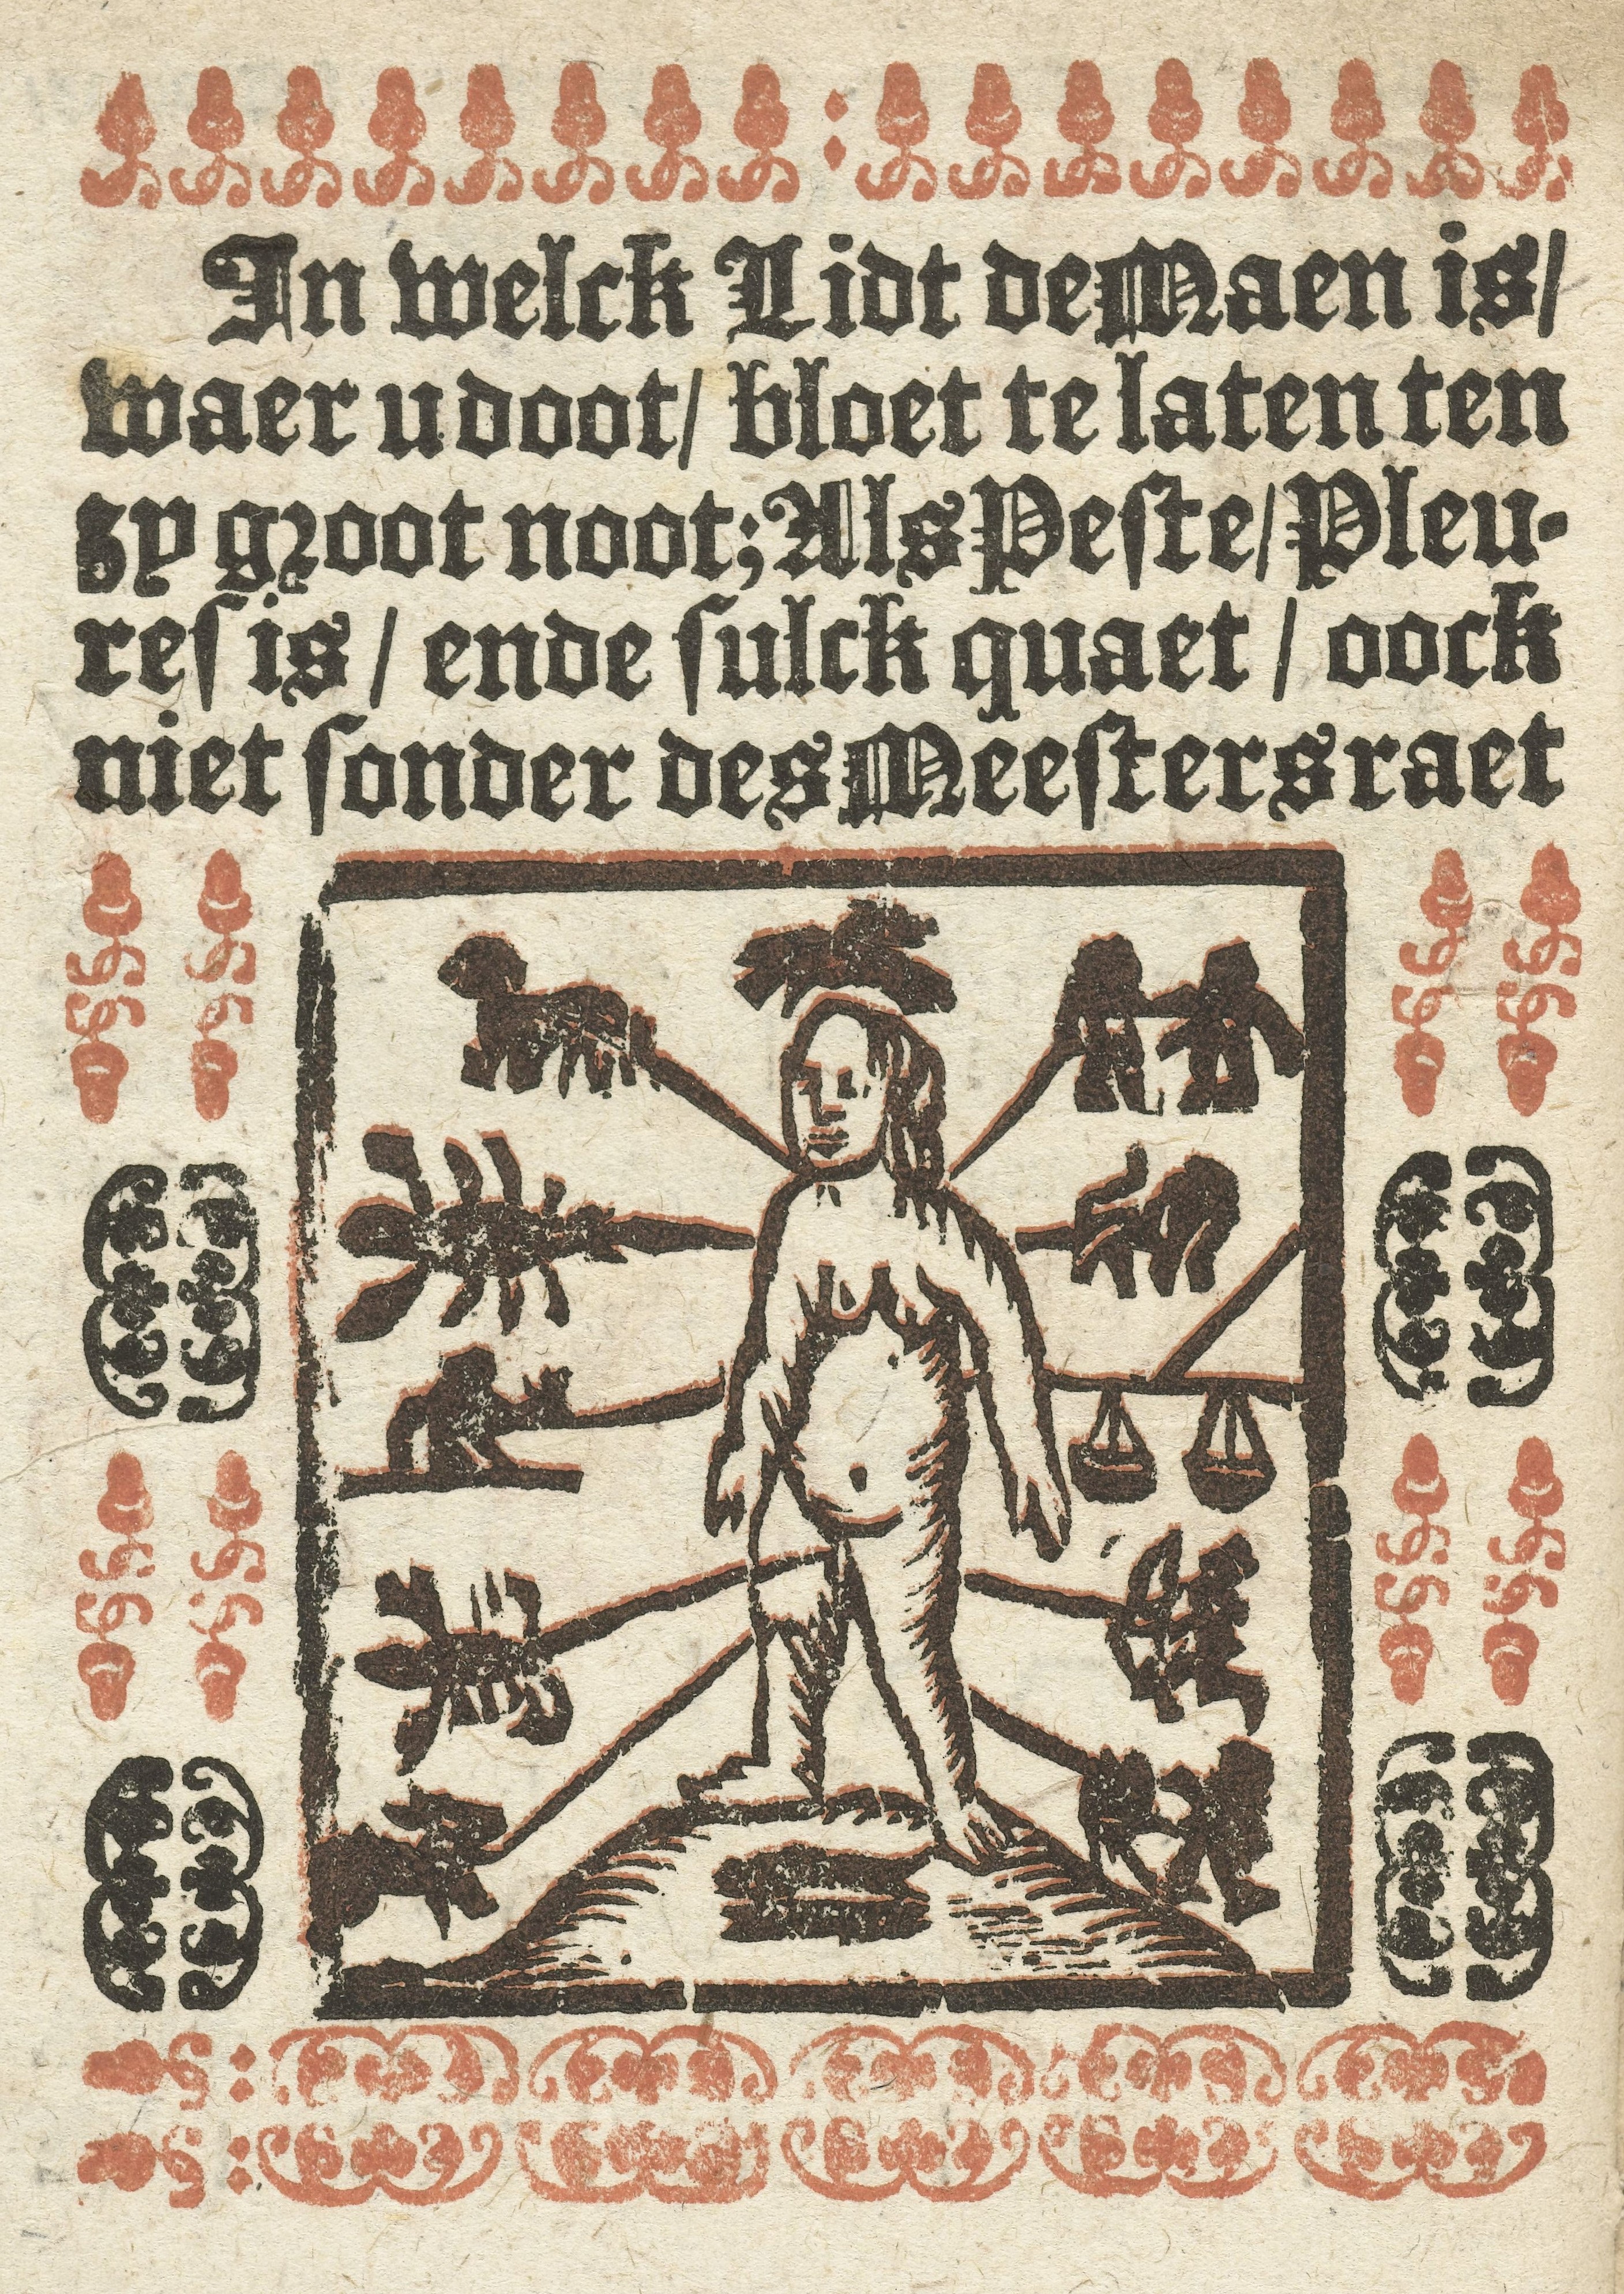 In welck Lidt de Maen is/
waer u doot/ bloet te laten ten
zy groot noot; Als Peste/ Pleu-
res is / ende sulck quaet / oock
niet sonder des Meesters raet